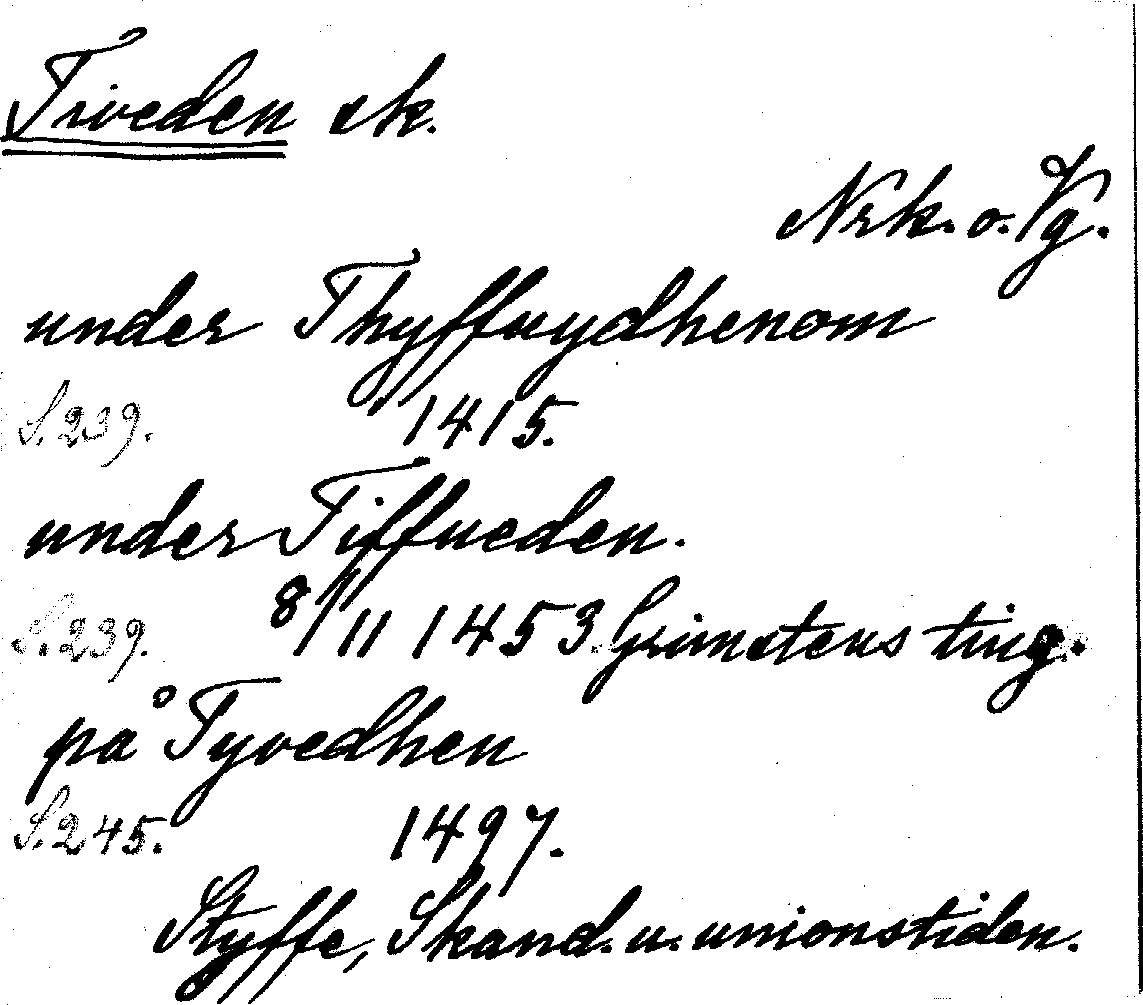 Tiveden sk.
Nrk. o. Vg.
under Thyffuydhenom
S. 239. 1415.
under Tiffueden.
S. 239. 8/11 1453. Grimstens ting.
på Tyvedhen
S. 245. 1497.
Styffe, Skand. u. unionstiden.